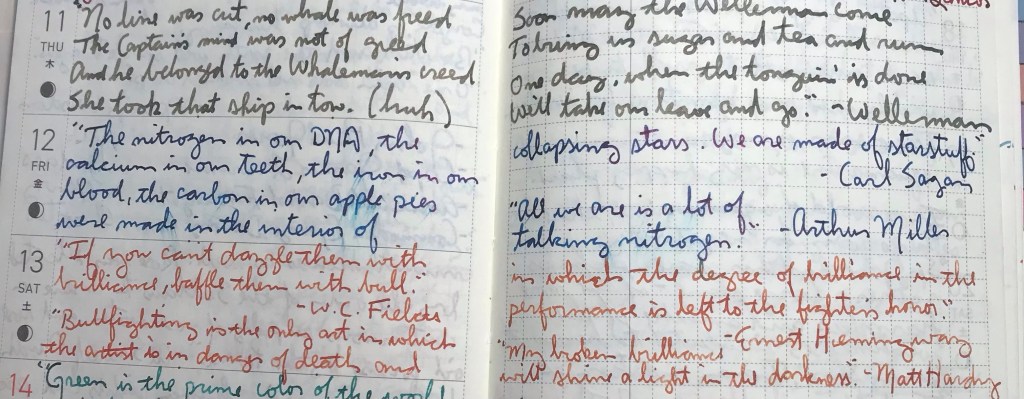 11
THU
木
"No line was cut, no whale was freed
The Captain's mind was not of greed
And he belonged to the Whaleman's creed
She took that ship in tow. (huh)
12
FRI
金
"The nitrogen in our DNA, the
calcium in our teeth, the iron in our
blood, the carbon in our apple pies
were made in the interior of
13
SAT
土
"If you can't dazzle them with
brilliance, baffle them with bull."
-W.C. Fields
"Bullfighting is the only art in which
the artist is in danger of death and
14
"Green is the prime color of the world
Soon may the Wellerman come
To bring us sugar and tea and rum
One day, when the tonguin' is done
will take our leave and go." -Wellerman
collapsing stars. We are made of starstuff."
- Carl Sagan
"All we are is a lot of
talking nitrogen." -Arthur Miller
in which the degree of brilliance in the
performance is left to the fighter's honor."
-Ernest Hemingway
"My broken brilliance
will shine a light in the darkness." -Matt Hardy